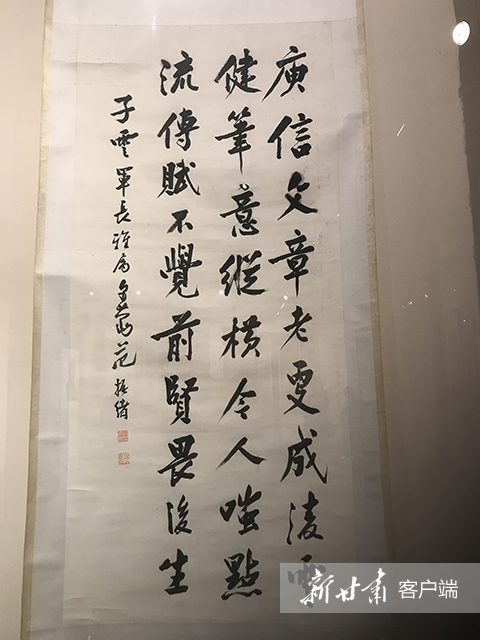 庾信文章老更成凌雲
健筆意縱橫今人嗤點
流傳賦不覺前賢畏後生
子雲軍長雅屬范振緒
新甘肃 客户端